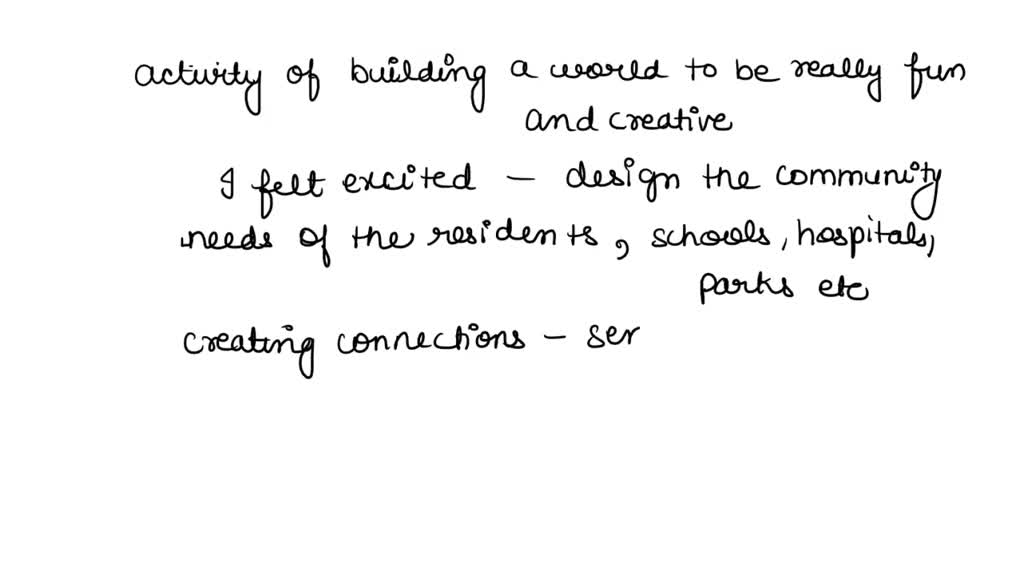 activity of building a world to be really fun
and creative
I felt excited - design the community
needs of the residents, schools, hospitals,
parks etc
creating connections - ser